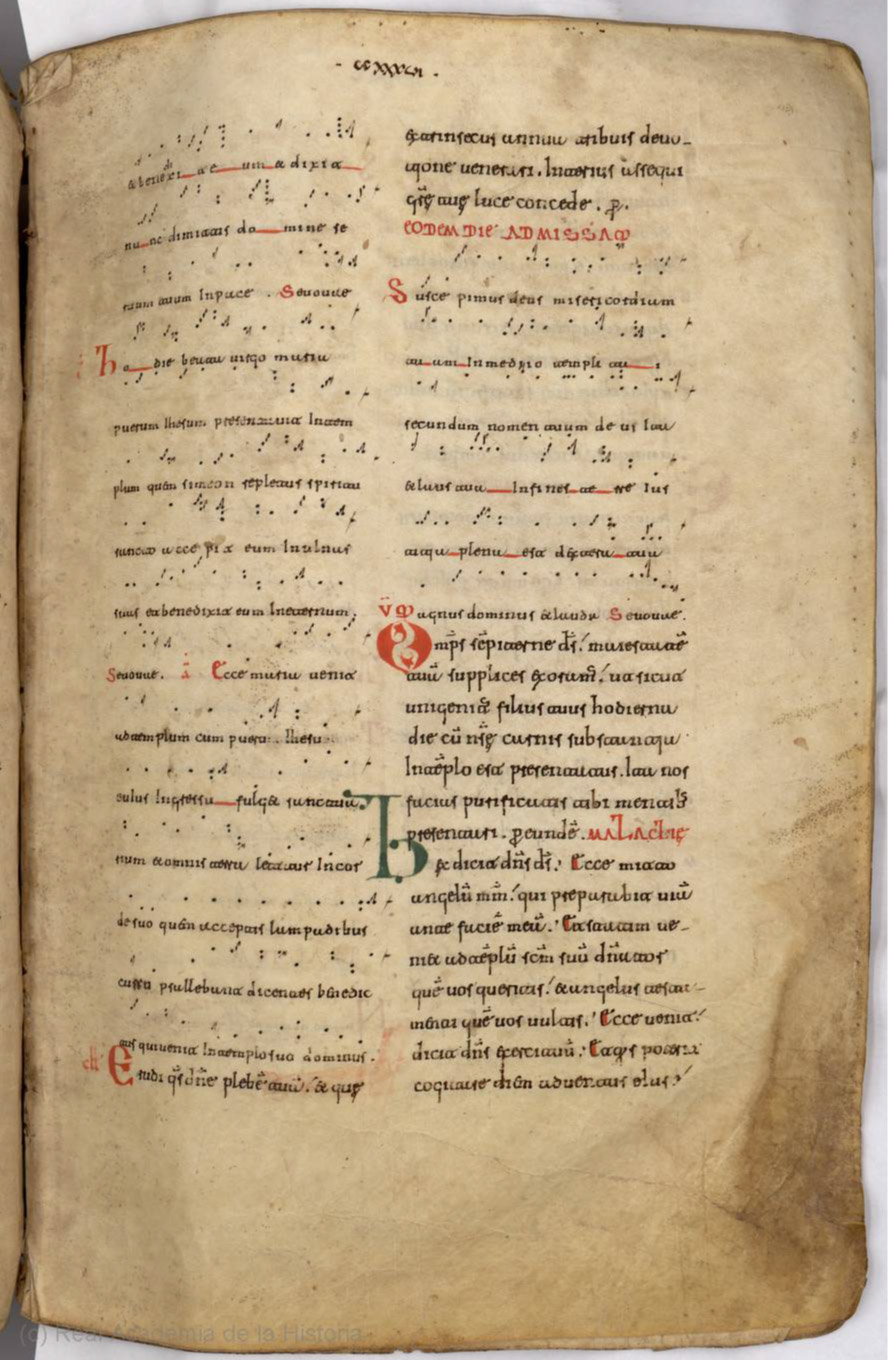 · cxxxvi ·
& benexi_ _ a& e_ _ um & dixit
nu_ _nc dimictatis do_ _ _mine se
ruum tuum Inpace . Seuouae
ho_ _die beata uirgo maria
puerum Ihesum presentauit Intem
plum quem simeon repletus spiritu
sancto accepit eum Inulnas
suas et benedixit eum Ineternum.
Seuouae. a Ecce maria uenit
ad templum cum puero. Ihesu
cuius Ingressu_ _ _fulg& sanctuariu
rium &omnis terra letatur Incor
de suo quem acceptis lampadibus
castis psallebant dicentes benedic
tus qui uenit Intemplo suo dominus.
Exaudi q̄s dn̄e plebē tuā: & quę
extrinsecus annua tribuis deuo-
tione uenerari. Interius assequi
grę tuę luce concede. p̲.
EODEM DIE AD MISSAM
Suscepimus deus misericordiam
tu_ _am_ _Inmedio templi tu_ _ _i
secundum nomen tuum deus lau
& laus tua_ _ _Infines te_ _ _rre Ius
titia_ _plena_ _est dextera_ _tua
V̄ Magnus dominus & laudabi Seuouae.
Omp̄s sēpiterne d̄s: maiestatē
tuā supplices exoram̄: ut sicut
unigenitꝰ filius tuus hodierna
die cū nr̄ę carnis substantia
Intēplo est presentatus. Ita nos
facias purificatis tibi mentib;
presentari. p̲ eundē. MALACHIę
hęc dicit dn̄s d̄s: Ecce mitto
angelū mm̄: qui preparabit uiā
ante faciē meā: Et statim ue-
ni& ad tēplū sc̄m suū dn̄ator
quē uos queritis: & angelus testa-
menti quē uos uultis: Ecce uenit:
dicit dn̄s exercituū: Et q̄s poterit
cogitare diē aduentus eius: